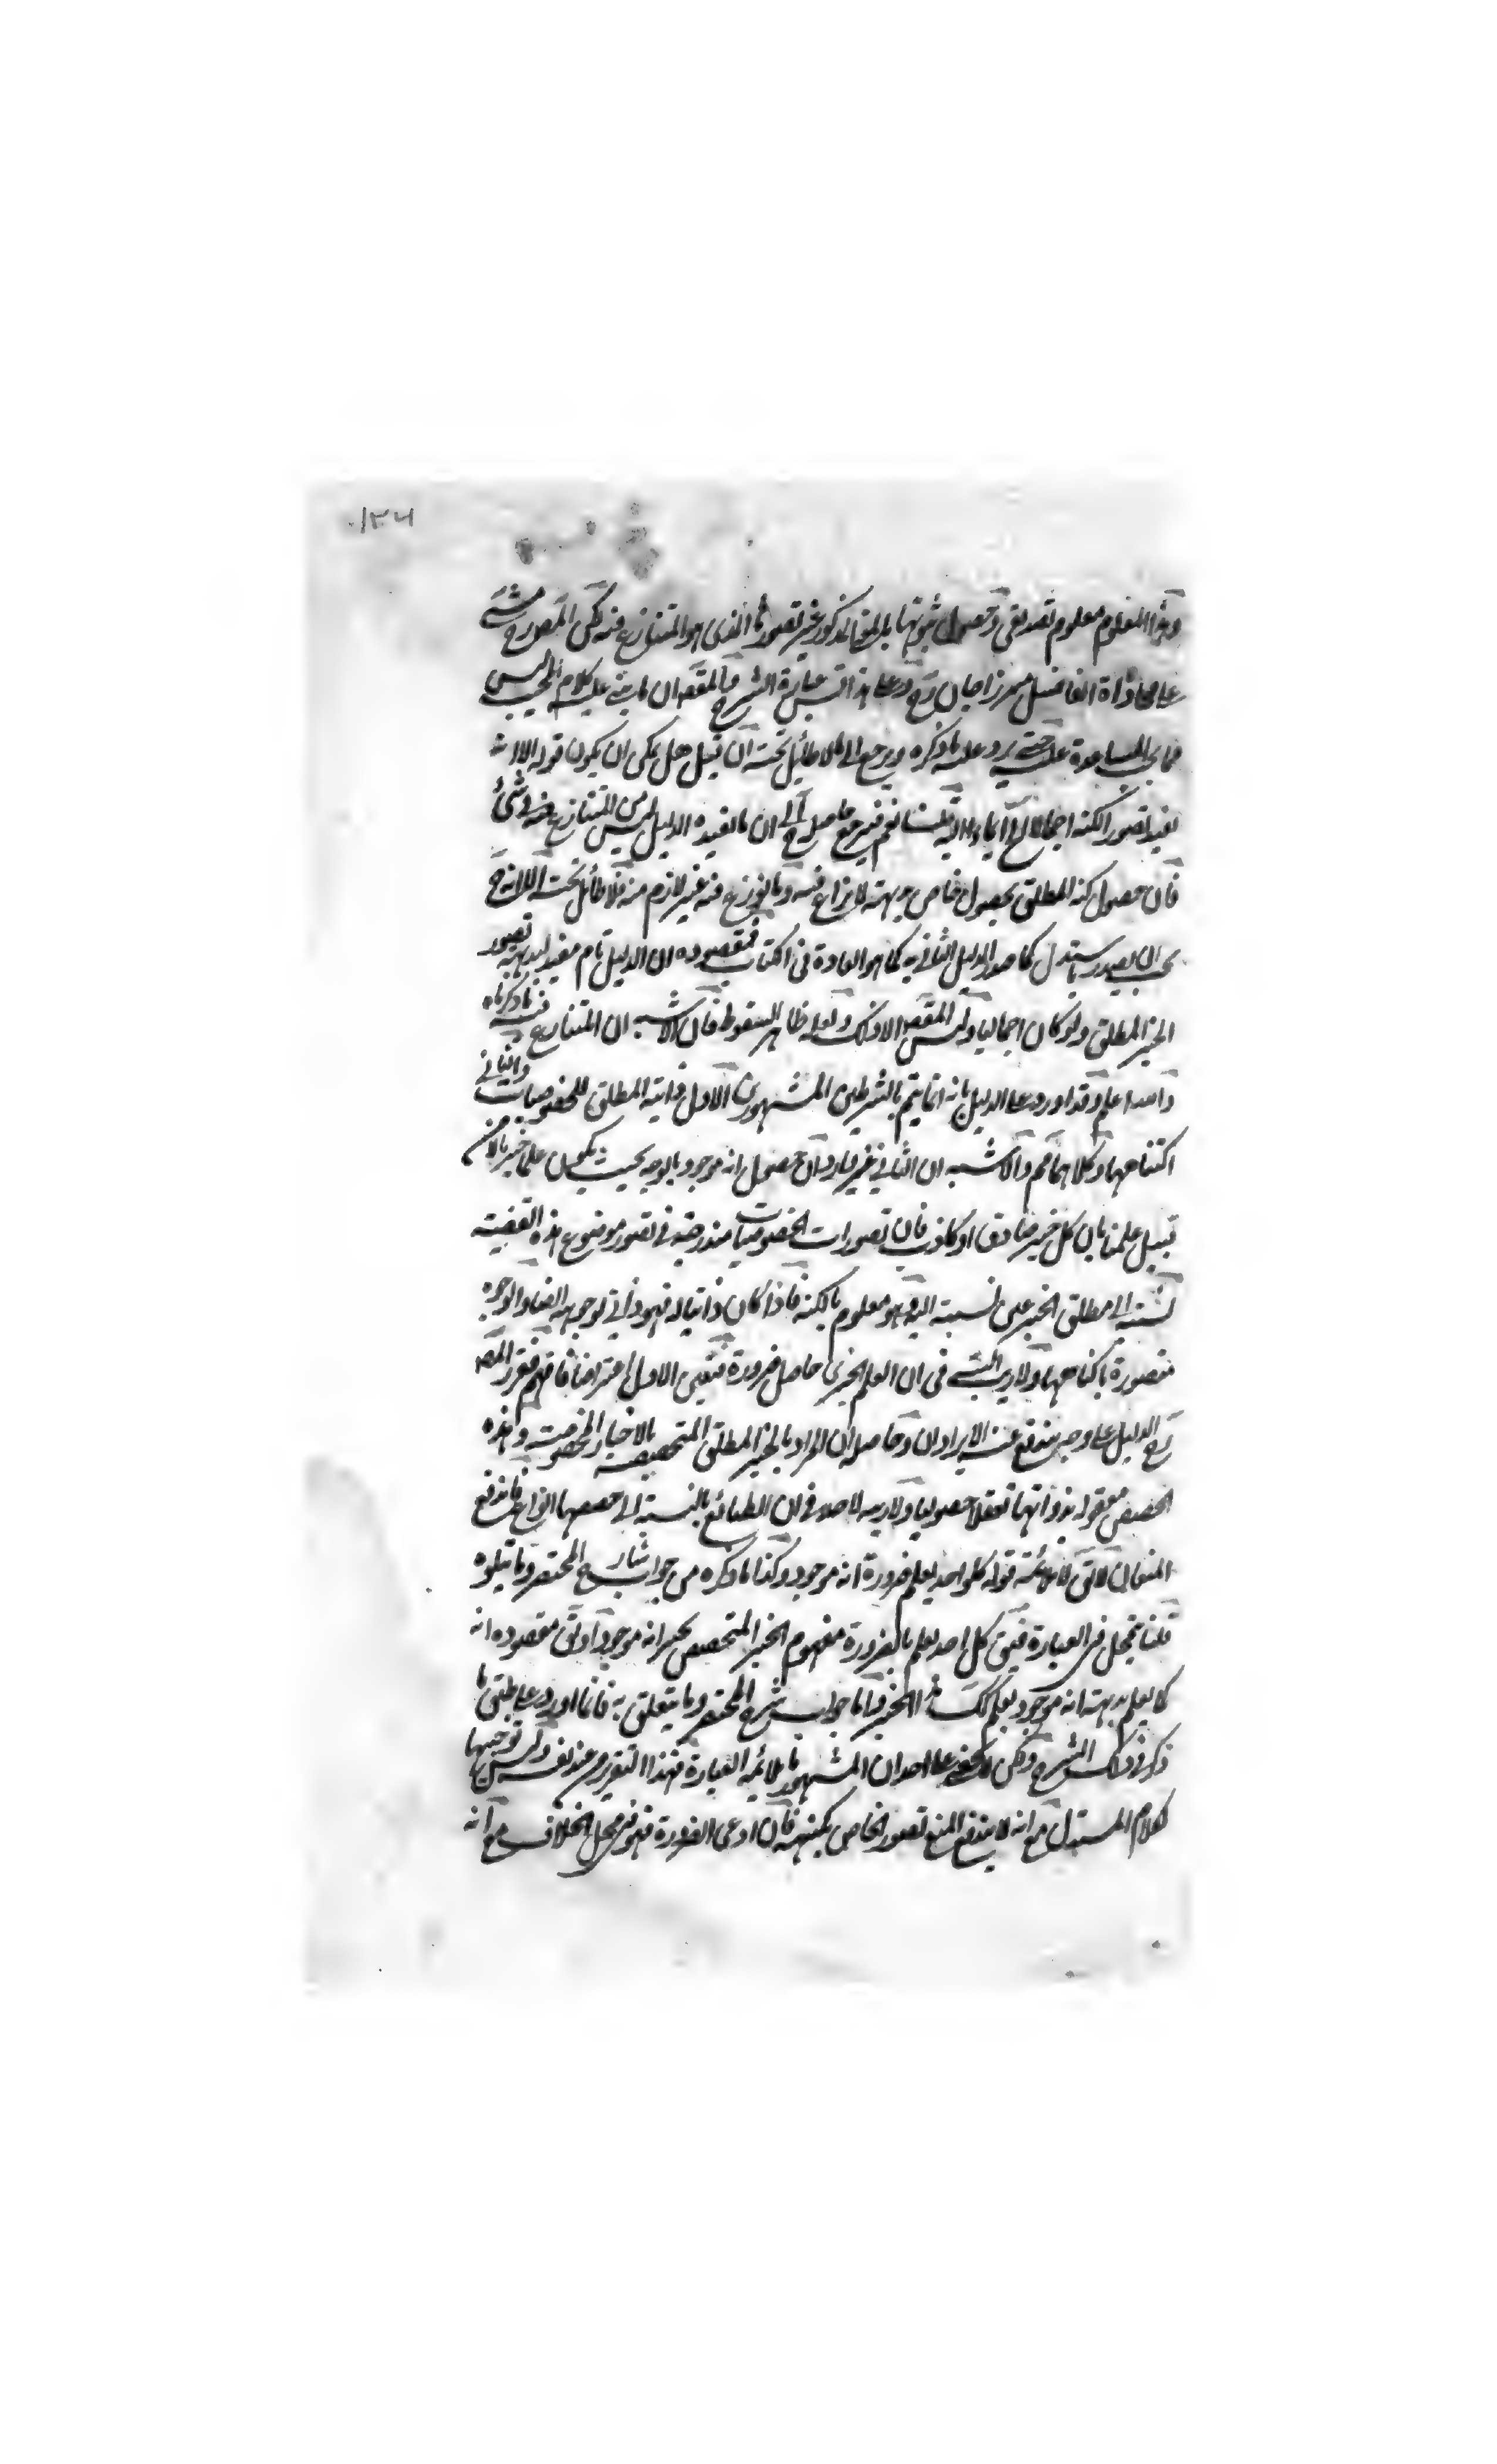 ١٣٤
وهذا المعلوم معلوم تصديقي وحصول ثبوتها بالمعنى المذكور غير تصورها الذي هو المتنازع فيه لكن المصرح مشى
على محاذاة الفاضل ميرزا جان رح وعلى هذا عبارة الشرح فالمقصود ان ما بنى عليه كلام المجيب ليس
مما يجب المساعدة عليه حتى يرد عليه ما ذكره ويرجع الى ما لا طائل تحته ان قيل هل يمكن ان يكون قوله الا انه
يفيد تصور الكنه اجمالا ايماء اليه قلنا نعم فيرجع حاصله الى ان ما يفيده الدليل ليس من المتنازع فيه في شئ
فان حصول كنه المطلق بحصول خاص بديهة لا نزاع فيه وما نوزع فيه غير لازم منه فلا طائل تحته الا انه ح
يجب ان يصدر بما يستدل كما صدر الدليل الثاني به كما هو العادة في الكتاب فمقصوده ان الدليل تام مفيد لبديهة تصور
الخبر المطلق ولو كان اجماليا وليس المقصود الا ذلك ولعله ظاهر السقوط فان الاشبه ان المتنازع فيه ما ذكرناه
والله اعلم وقد اورد على الدليل بانه انما يتم بالشرطين المشهورين الاول ذاتية المطلق للخصوصيات والثاني
اكتناهها وكلاهما مم والاشبه ان الثاني غير وارد فان حصول انه موجود بالوجه بحيث يكون علما خبريا لا من
قبيل علمنا بان كل خبر صادق او كاذب فان تصورات الخصوصيات مندرجة في تصور موضوع هذه القضية
نسبته الى مطلق الخبر على نسبة اليه وهو معلوم بالكنه فاذا كان ذاتيا له فهو ذاتي لوجهه ايضا والوجوه
متصورة باكتناهها ولا ريب في ان العلم الخبري حاصل ضرورة فتعين الاول اعتراضا فافهم فقرر المصـ
رح الدليل على وجه يندفع عنه الايرادان وحاصله ان المراد بالخبر المطلق المتحصص بالاخبار المخصوصة وهذه
الحصص معقولة بذواتها تعقلا حصوليا ولا ريب لاحد في ان الطبائع بالنسبة الى حصصها انواع فاندفع
المنعان لا تي لا يلائمه قوله كل واحد يعلم ضرورة انه موجود وكذا ما ذكره من جواب شارح المختصر وما يتلوه
قلنا يتمحل في العبارة فيق كل احد يعلم بالضرورة مفهوم الخبر المتحصص بخبر انه موجود او يق مقصوده انه
كما يعلم بديهة انه موجود يعلم كك هذا الخبر واما جواب شرح المختصر وما يتعلق به فانما اورد على طبق ما
ذكر في ذلك الشرح ولكن لا يخفى على احد ان المشهور ما يلائمه العبارة فهذا التقرير من عند نفسه وليس توجيها
لكلام المستدل مع انه لا يندفع المنع تصور الخاص بكنهه فان ادعى الضرورة فهو في محل الخلاف مع انه